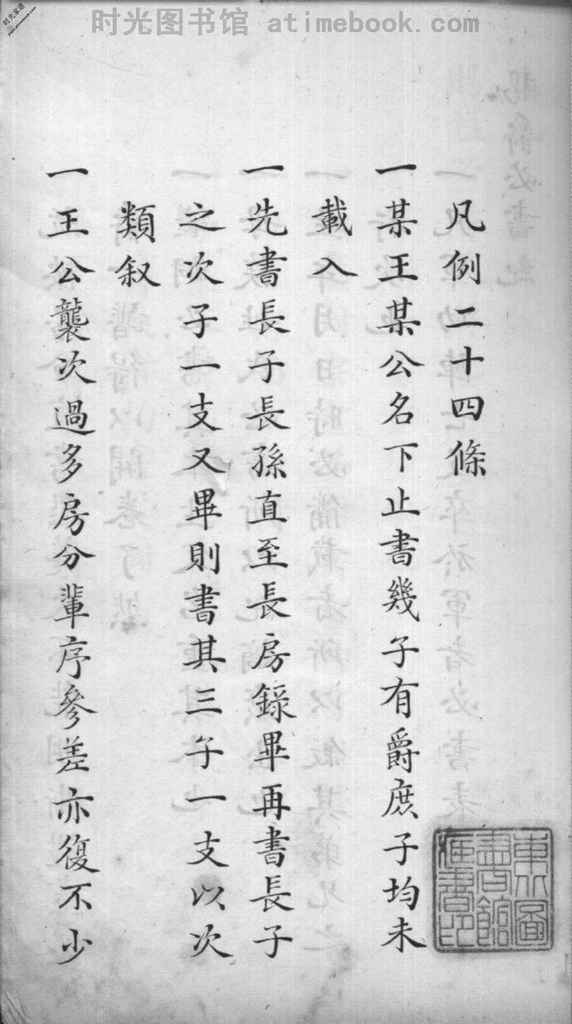 时光图书馆 atimebook.com
凡例二十四條
一某王某公名下止書幾子有爵庶子均未
載入
一先書長子長孫直至長房錄畢再書長子
之次子一支又畢則書其三子一支以次
類叙
一王公襲次過多房分輩序參差亦復不少